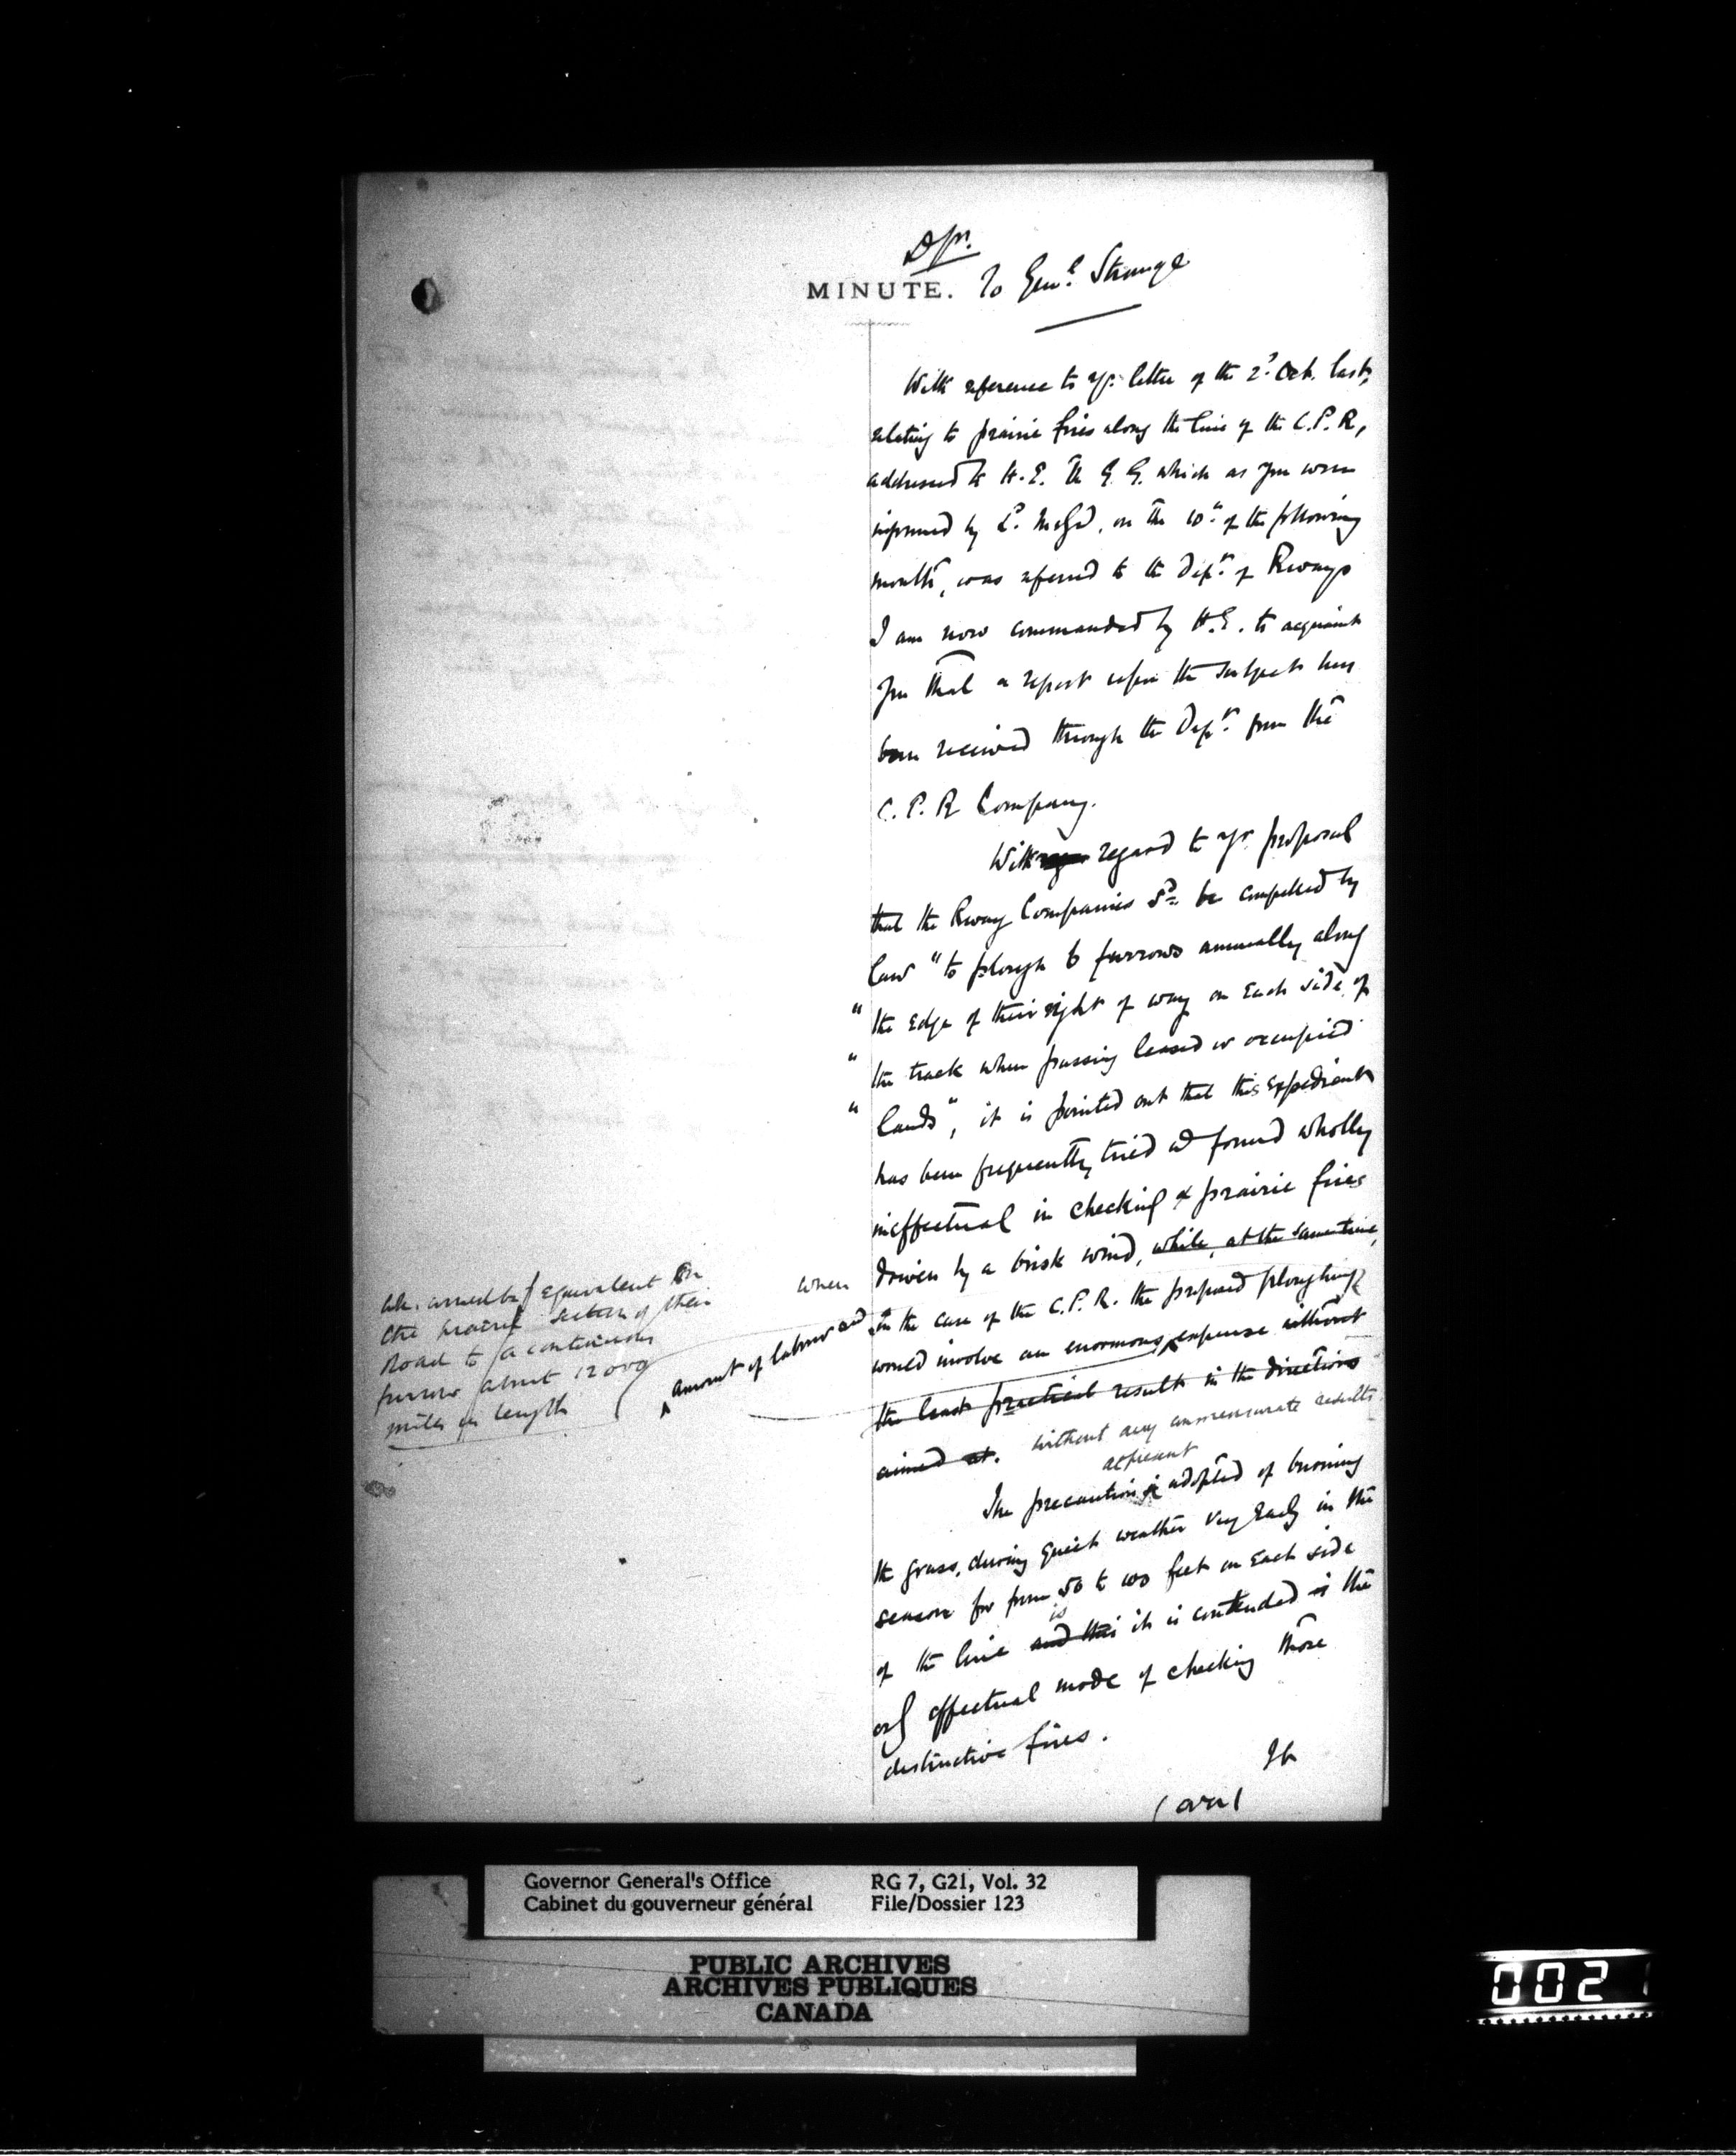 Dft.
MINUTE. To Genl. Strange
With reference to yr. letter of the 2d Oct. last,
relating to prairie fires along the line of the C.P.R,
addressed to H.E. the G.G. which as you were
informed by Ld. on the 10th of the following
month, was referred to the Dept. of Rways
I am now commanded by H.E. to acquaint
you that a report upon the subject has
been received through the Dept. from the
C.P.R Company.
With regard to yr. proposal
that the Rway Companies sd. be compelled by
law "to plough 6 furrows annually along
" the edge of their right of way on each side of
" the track when passing leased or occupied
" lands", it is pointed out that this expedient
has been frequently tried and found wholly
ineffectual in checking prairie fires
when driven by a brisk wind, while, at the same time,
in the case of the C.P.R. the proposed ploughing
wh. would be equivalent on
the prairie section of their
Road to a continuous
furrow about 12000
miles in length
would involve an enormous expense without
amount of labour and
the least practical results in the directions
aimed at. without any commensurate results
at present
The precaution is adopted of burning
the grass, during quiet weather very early in the
season for from 50 to 100 feet on each side
of the line and this it is contended is the
is
only effectual mode of checking those
destructive fires.
It
(over)
Governor General's Office RG 7, G21, Vol. 32
Cabinet du gouverneur général File/Dossier 123
PUBLIC ARCHIVES
ARCHIVES PUBLIQUES
CANADA
002